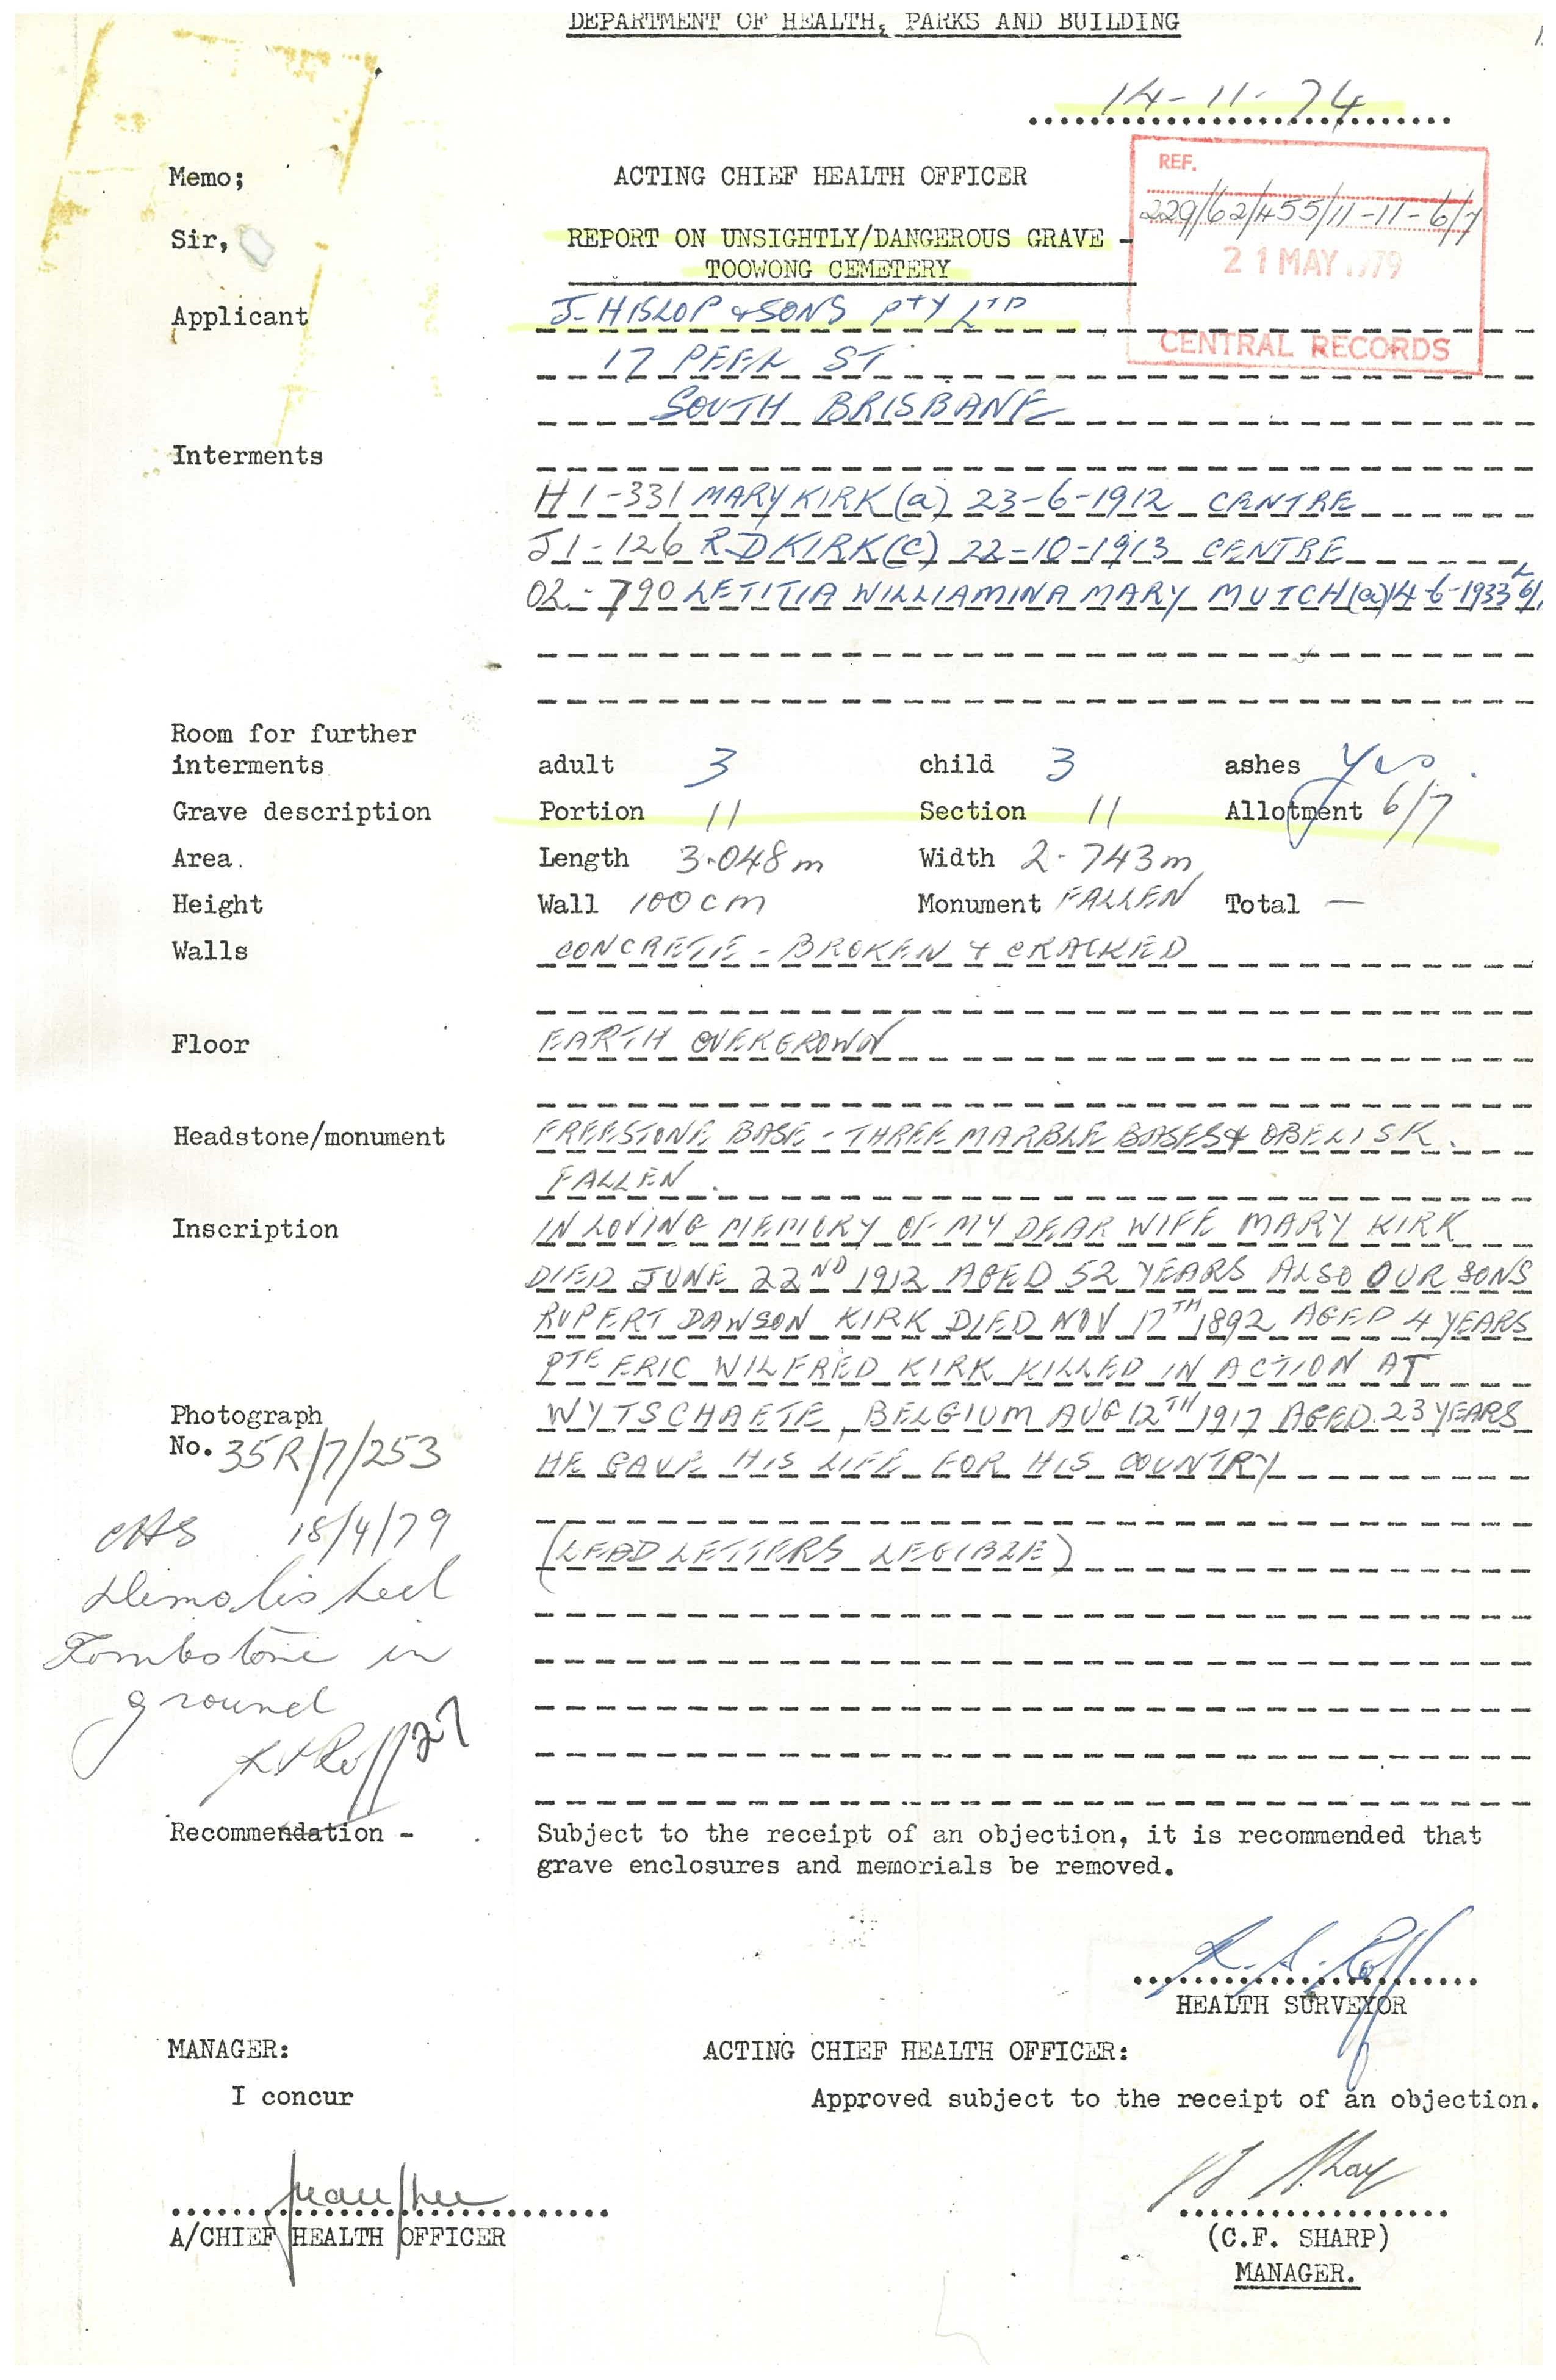 DEPARTMENT OF HEALTH, PARKS AND BUILDING
14-11-74
Memo; ACTING CHIEF HEALTH OFFICER
REF.
229/62/455/11-11-6/7
21 MAY 1979
CENTRAL RECORDS
Sir, REPORT ON UNSIGHTLY/DANGEROUS GRAVE -
TOOWONG CEMETERY
Applicant J. HISLOP & SONS PTY LTD
17 PEEL ST
SOUTH BRISBANE
Interments
H1-331 MARY KIRK (a) 23-6-1912 CENTRE
J1-126 R D KIRK (C) 22-10-1913 CENTRE
02-790 LETITIA WILLIAMINA MARY MUTCH (a) 14-6-1933
Room for further
interments adult 3 child 3 ashes yes.
Grave description Portion 11 Section 11 Allotment 6/7
Area. Length 3.048m Width 2.743m
Height Wall 100cm Monument FALLEN Total —
Walls CONCRETE - BROKEN & CRACKED
Floor EARTH OVERGROWN
Headstone/monument FREESTONE BASE - THREE MARBLE BASES & OBELISK.
FALLEN.
Inscription IN LOVING MEMORY OF MY DEAR WIFE MARY KIRK
DIED JUNE 22ND 1912 AGED 52 YEARS ALSO OUR SONS
RUPERT DAWSON KIRK DIED NOV 17TH 1892 AGED 4 YEARS
PTE ERIC WILFRED KIRK KILLED IN ACTION AT
WYTSCHAETE, BELGIUM AUG 12TH 1917 AGED 23 YEARS
HE GAVE HIS LIFE FOR HIS COUNTRY
(LEAD LETTERS LEGIBLE)
Photograph
No. 35R/7/253
18/4/79
Demolished
Tombstone in
ground
Recommendation - Subject to the receipt of an objection, it is recommended that
grave enclosures and memorials be removed.
HEALTH SURVEYOR
MANAGER: ACTING CHIEF HEALTH OFFICER:
I concur Approved subject to the receipt of an objection.
A/CHIEF HEALTH OFFICER (C.F. SHARP)
MANAGER.